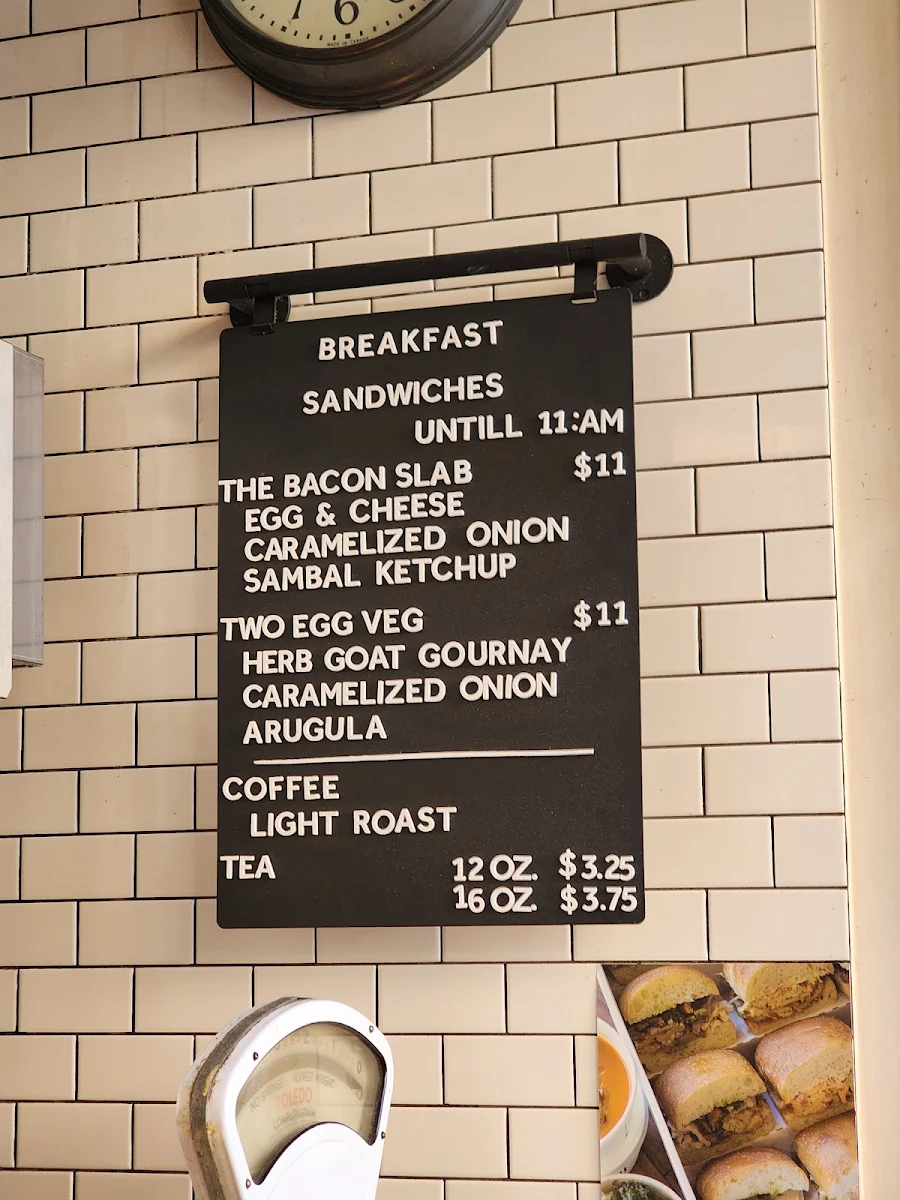 6
MADE IN CANADA
BREAKFAST
SANDWICHES
UNTILL 11:AM
THE BACON SLAB $11
EGG & CHEESE
CARAMELIZED ONION
SAMBAL KETCHUP
TWO EGG VEG $11
HERB GOAT GOURNAY
CARAMELIZED ONION
ARUGULA
COFFEE
LIGHT ROAST
TEA 12 OZ. $3.25
16 OZ. $3.75